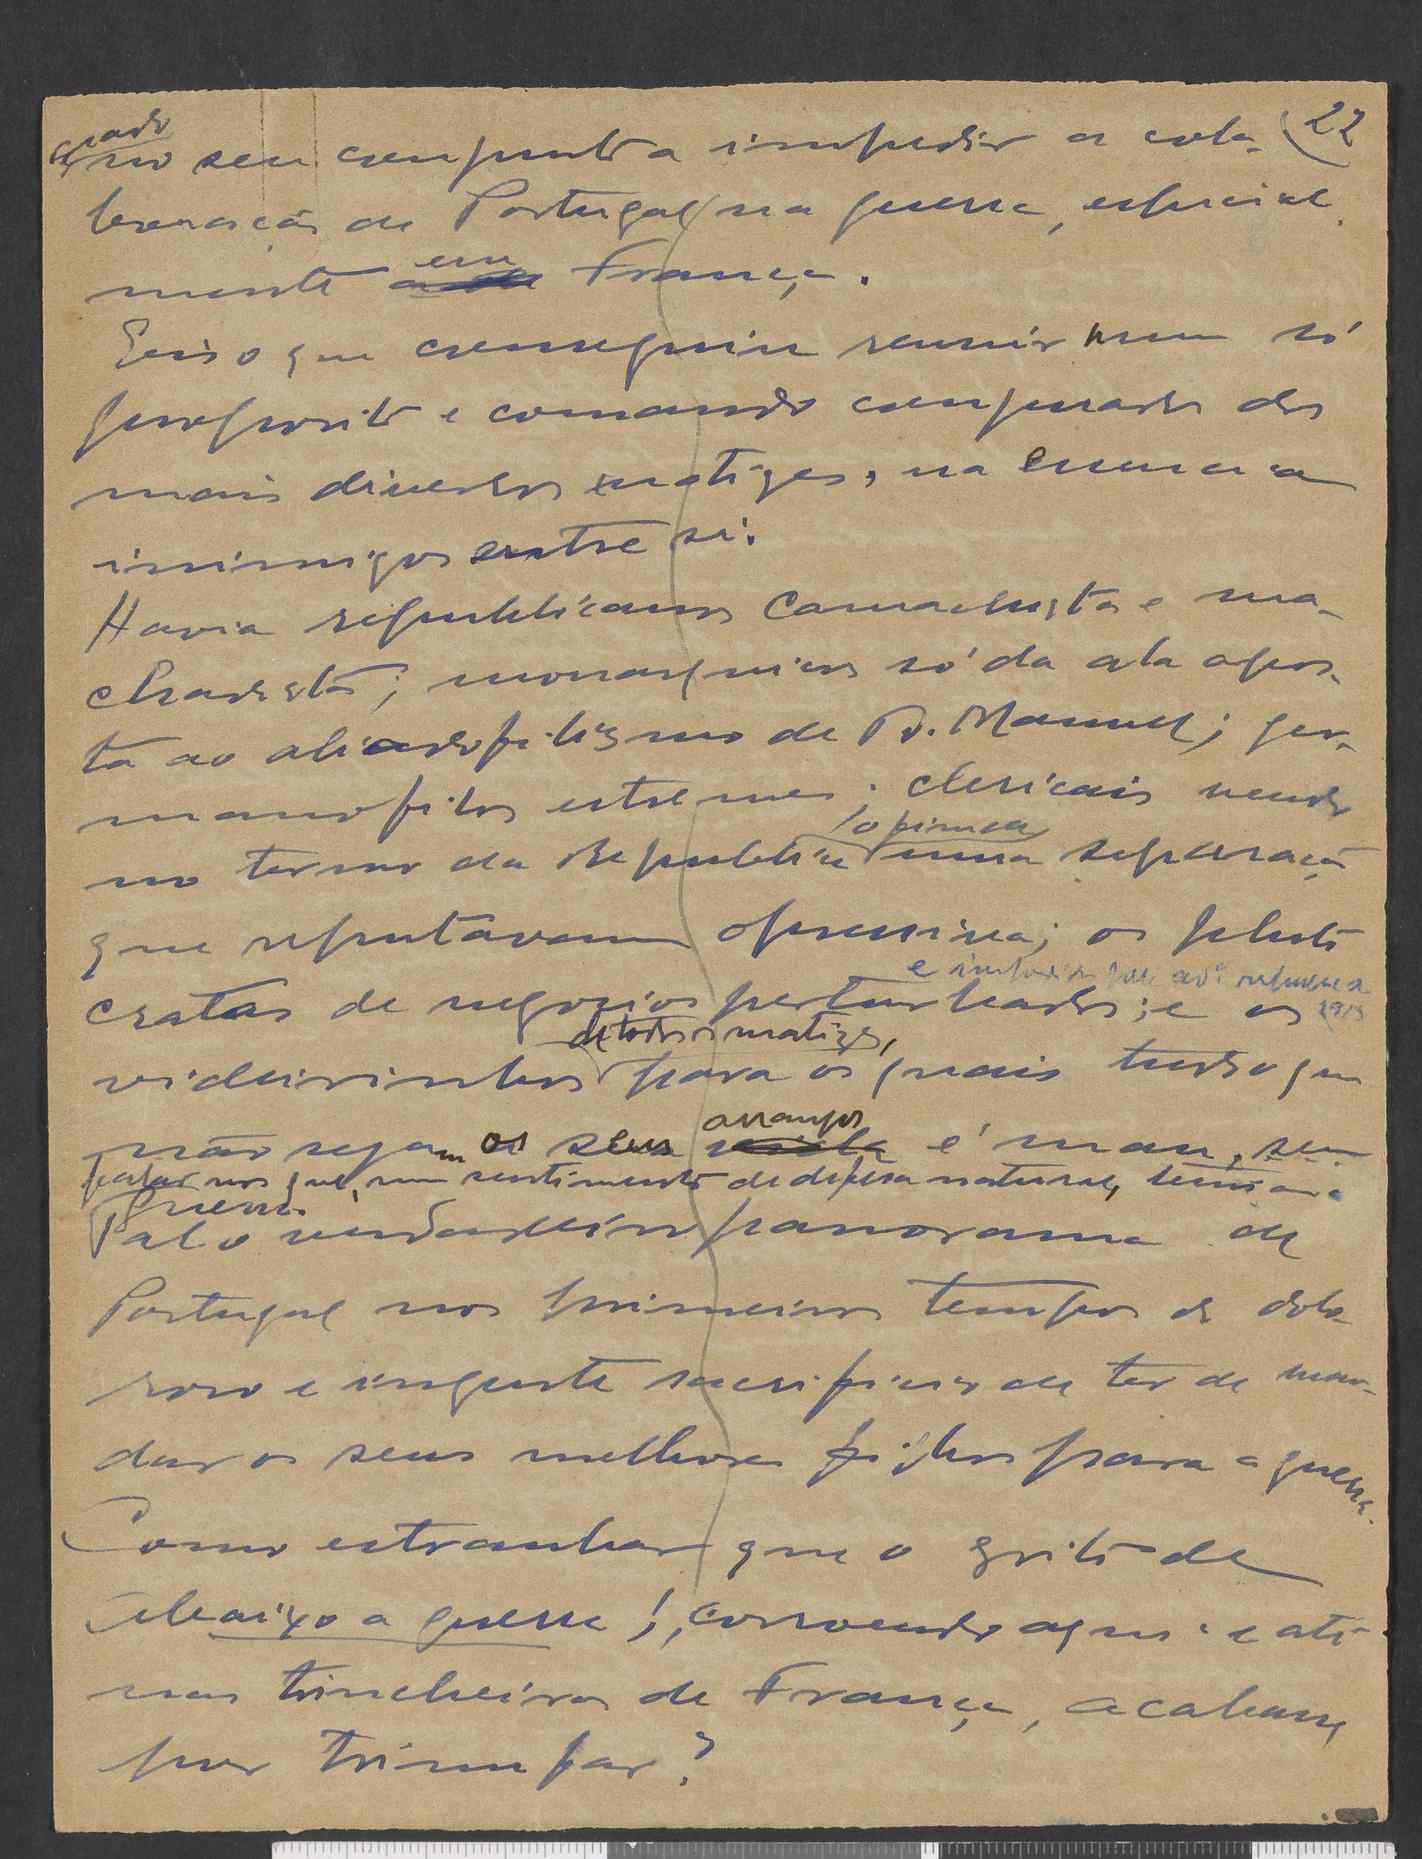 22
no seu conjunto a impedir a cola-
boração de Portugal na guerra, especial-
mente em França.
Eis o que conseguiu reunir num só
proposito e comando conjurados dos
mais diversos matizes, na essencia
inimigos entre si.
Havia republicanos camachistas e ma-
chadistas; monarquicos só da ala opos-
ta ao aliadofilismo de D. Manuel; ger-
manofilos estremes; clericais vendo
no termo da Republica uma separação
que reputavam opressiva; os pluto
cratas de negocios perturbados; e os
de todos os matizes,
videirinhos para os quais tudo o que
arranjos
não sejam os seus é mau, sem
falar nos que, num sentimento de defesa natural, temiam a
guerra.
Tal o verdadeiro panorama de
Portugal nos primeiros tempos do dolo-
roso e ingente sacrificio de ter de man-
dar os seus melhores filhos para a guerra.
Como estranhar que o grito de
Abaixo a guerra!, corroendo aqui e até
nas trincheiras de França, acabasse
por triunfar?